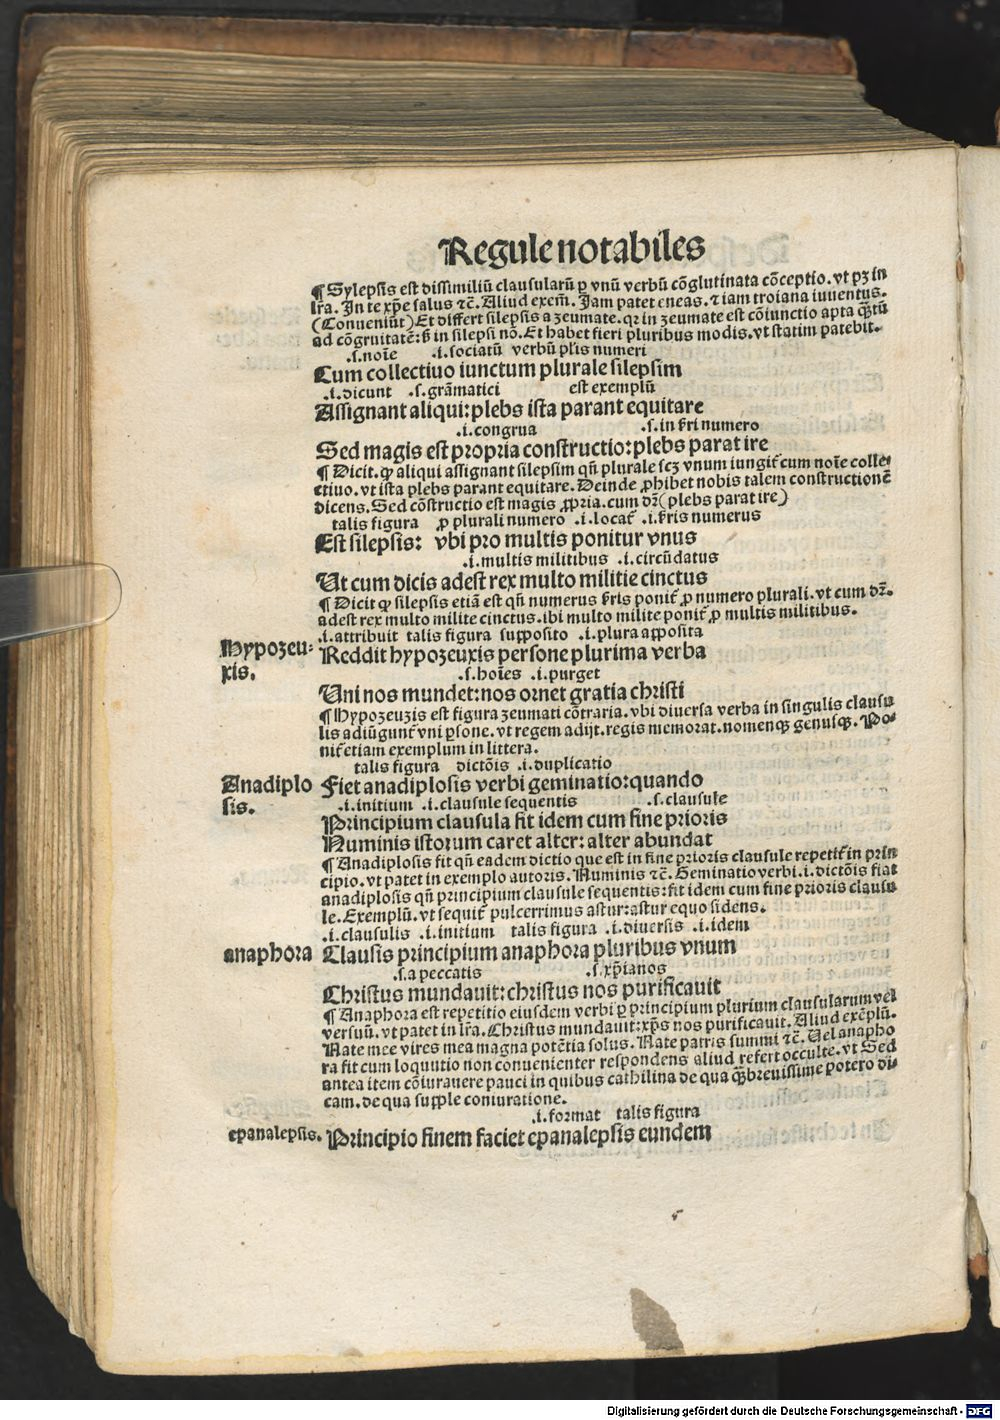 Regule notabiles
¶ Sylepsis est dissimiliū clausularū ꝑ vnū verbū cōglutinata cōceptio. vt pꝫ in
lr̄a. In te xp̄e salus ⁊c̄. Aliud exem̄. Jam patet eneas. ⁊ iam troiana iuuentus.
(Conueniūt) Et differt silepsis a zeumate. qꝛ in zeumate est cōiunctio apta q̄ꝫtū
ad cōgruitatē: s̄ in silepsi nō. Et habet fieri pluribus modis. vt statim patebit.
.s. noīe .i. sociatū verbū pl̄is numeri
Cum collectiuo iunctum plurale silepsim
.i. dicunt .s. grāmatici est exemplū
Assignant aliqui: plebs ista parant equitare
.i. congrua .s. in s̄ri numero
Sed magis est propria constructio: plebs parat ire
¶ Dicit. ꝙ aliqui assignant silepsim qn̄ plurale scꝫ vnum iungit̄ cum noīe colle-
ctiuo. vt ista plebs parant equitare. Deinde ꝓhibet nobis talem constructionē
dicens. Sed cōstructio est magis ꝓpria. cum dr̄ (plebs parat ire)
talis figura ꝓ plurali numero .i. locat̄ .i. s̄ris numerus
Est silepsis: vbi pro multis ponitur vnus
.i. multis militibus .i. circūdatus
Ut cum dicis adest rex multo militie cinctus
¶ Dicit ꝙ silepsis etiā est qn̄ numerus s̄ris ponit̄ ꝓ numero plurali. vt cum dr̄.
adest rex multo milite cinctus. ibi multo milite ponit̄ ꝓ multis militibus.
.i. attribuit talis figura sup̄posito .i. plura ap̄posita
Hypozeu-
xis.
Reddit hypozeuxis persone plurima verba
.s. hoīes .i. purget
Uni nos mundet: nos ornet gratia christi
¶ Hypozeuzis est figura zeumati cōtraria. vbi diuersa verba in singulis clausu
lis adiūgunt̄ vni ꝑsone. vt regem adijt. regis memorat. nomenqꝫ genusqꝫ. Po-
nit̄ etiam exemplum in littera.
talis figura dictōis .i. duplicatio
Anadiplo
sis.
Fiet anadiplosis verbi geminatio: quando
.i. initium .i. clausule sequentis .s. clausule
Principium clausula fit idem cum fine prioris
Numinis istorum caret alter: alter abundat
¶ Anadiplosis fit qn̄ eadem dictio que est in fine prioris clausule repetit̄ in prin
cipio. vt patet in exemplo autoris. Numinis ⁊c̄. Geminatio verbi .i. dictōis fiat
anadiplosis qn̄ principium clausule sequentis: fit idem cum fine prioris clausu
le. Exemplū. vt sequit̄ pulcerrimus astur: astur equo fidens.
.i. clausulis .i. initium talis figura .i. diuersis .i. idem
anaphora
Clausis principium anaphora pluribus vnum
.s. a peccatis .s. xp̄ianos
Christus mundauit: christus nos purificauit
¶ Anaphora est repetitio eiusdem verbi ꝑ principium plurium clausularum vel
versuū. vt patet in lr̄a. Christus mundauit: xp̄s nos purificauit. Aliud exēplū.
Nate mee vires mea magna potētia solus. Nate patris summi ⁊c̄. Uel anapho
ra fit cum loquutio non conuenienter respondens aliud refert occulte. vt Sed
antea item cōiurauere pauci in quibus cathilina de qua q̄ꝫbreuissime potero di-
cam. de qua sup̄ple coniuratione.
.i. format talis figura
epanalepsis.
Principio finem faciet epanalepsis eundem
Digitalisierung gefördert durch die Deutsche Forschungsgemeinschaft - DFG